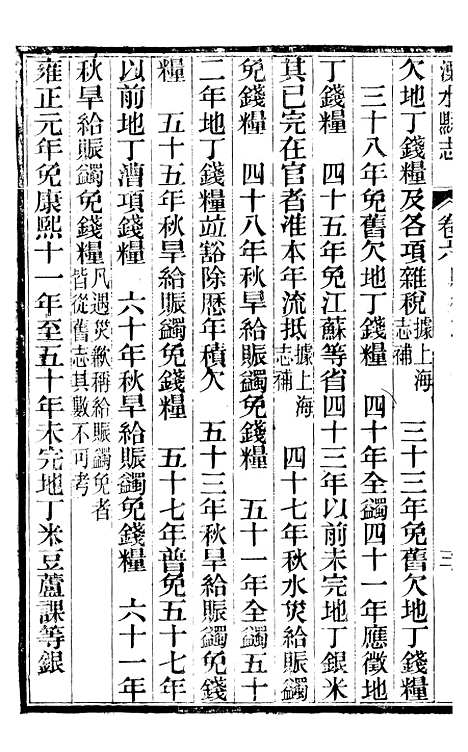 溧水縣志 卷六
欠地丁錢糧及各項雜稅據上海志補 三十三年免舊欠地丁錢糧
三十八年免舊欠地丁錢糧 四十年全蠲四十一年應徵地
丁錢糧 四十五年免江蘇等省四十三年以前未完地丁銀米
其已完在官者准本年流抵據上海志補 四十七年秋水災給賑蠲
免錢糧 四十八年秋旱給賑蠲免錢糧 五十一年全蠲五十
二年地丁錢糧竝豁除歷年積欠 五十三年秋旱給賑蠲免錢
糧 五十五年秋旱給賑蠲免錢糧 五十七年普免五十七年
以前地丁漕項錢糧 六十年秋旱給賑蠲免錢糧 六十一年
秋旱給賑蠲免錢糧凡遇災歉稱給賑蠲免者皆從舊志其數不可考
雍正元年免康熙十一年至五十年未完地丁米豆蘆課等銀